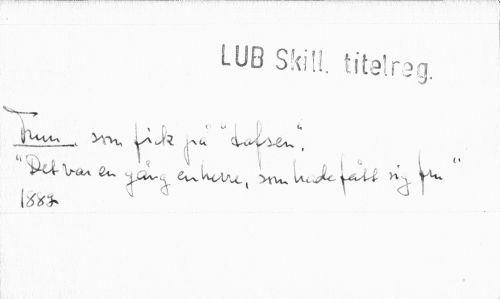 LUB Skill. titelreg.
Frun, som fick på "tofsen".
"Det var en gång en herre, som hade fått sig fru"
1887